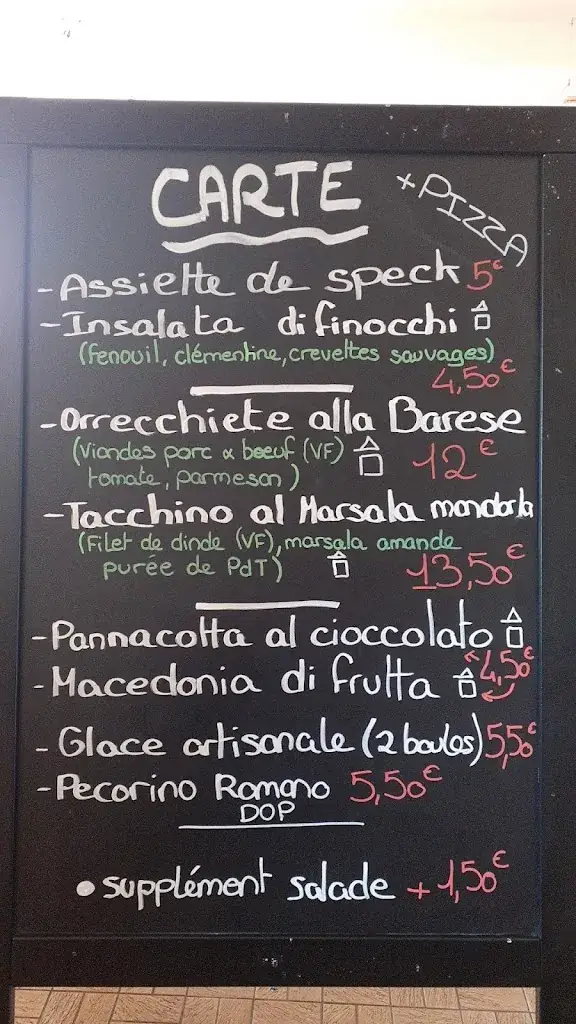 CARTE
+ PIZZA
- Assiette de speck 5€
- Insalata di finocchi
(fenouil, clémentine, crevettes sauvages)
4,50€
- Orrecchiete alla Barese
(Viandes porc & boeuf (VF)
tomate, parmesan)
12€
- Tacchino al Marsala mandorla
(Filet de dinde (VF), marsala amande
purée de PdT)
13,50€
- Pannacotta al cioccolato
4,50€
- Macedonia di frutta
- Glace artisanale (2 boules) 5,50€
- Pecorino Romano 5,50€
DOP
• supplément salade + 1,50€